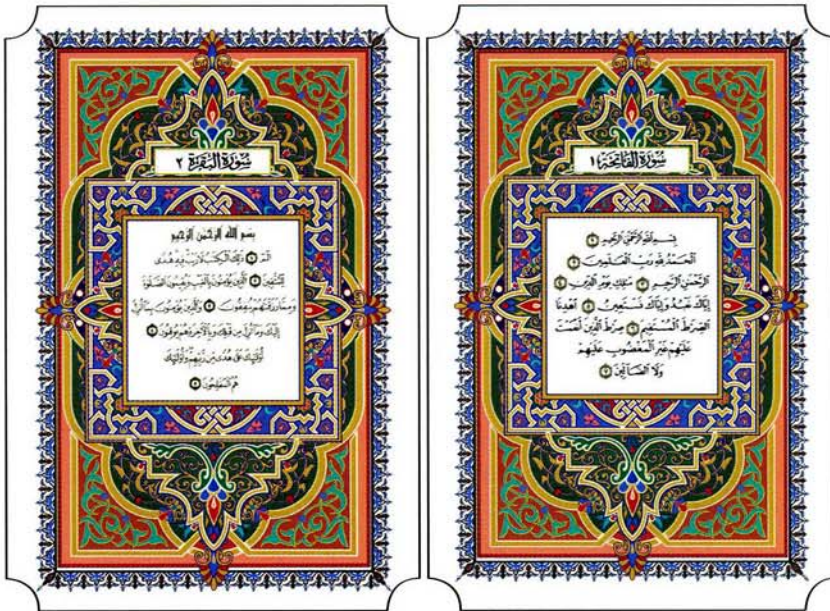 سُورَةُ الفَاتِحَة ١
بِسْمِ ٱللَّهِ ٱلرَّحْمَٰنِ ٱلرَّحِيمِ
ٱلْحَمْدُ لِلَّهِ رَبِّ ٱلْعَٰلَمِينَ
ٱلرَّحْمَٰنِ ٱلرَّحِيمِ مَٰلِكِ يَوْمِ ٱلدِّينِ
إِيَّاكَ نَعْبُدُ وَإِيَّاكَ نَسْتَعِينُ ٱهْدِنَا
ٱلصِّرَٰطَ ٱلْمُسْتَقِيمَ صِرَٰطَ ٱلَّذِينَ أَنْعَمْتَ
عَلَيْهِمْ غَيْرِ ٱلْمَغْضُوبِ عَلَيْهِمْ
وَلَا ٱلضَّآلِّينَ
سُورَةُ البَقَرَةِ ٢
بِسْمِ اللهِ الرَّحْمَٰنِ الرَّحِيمِ
الٓمٓ ذَٰلِكَ ٱلْكِتَٰبُ لَا رَيْبَ فِيهِ هُدًى
لِّلْمُتَّقِينَ ٱلَّذِينَ يُؤْمِنُونَ بِٱلْغَيْبِ وَيُقِيمُونَ ٱلصَّلَوٰةَ
وَمِمَّا رَزَقْنَٰهُمْ يُنفِقُونَ وَٱلَّذِينَ يُؤْمِنُونَ بِمَآ أُنزِلَ
إِلَيْكَ وَمَآ أُنزِلَ مِن قَبْلِكَ وَبِٱلْأٓخِرَةِ هُمْ يُوقِنُونَ
أُوْلَٰٓئِكَ عَلَىٰ هُدًى مِّن رَّبِّهِمْ وَأُوْلَٰٓئِكَ
هُمُ ٱلْمُفْلِحُونَ